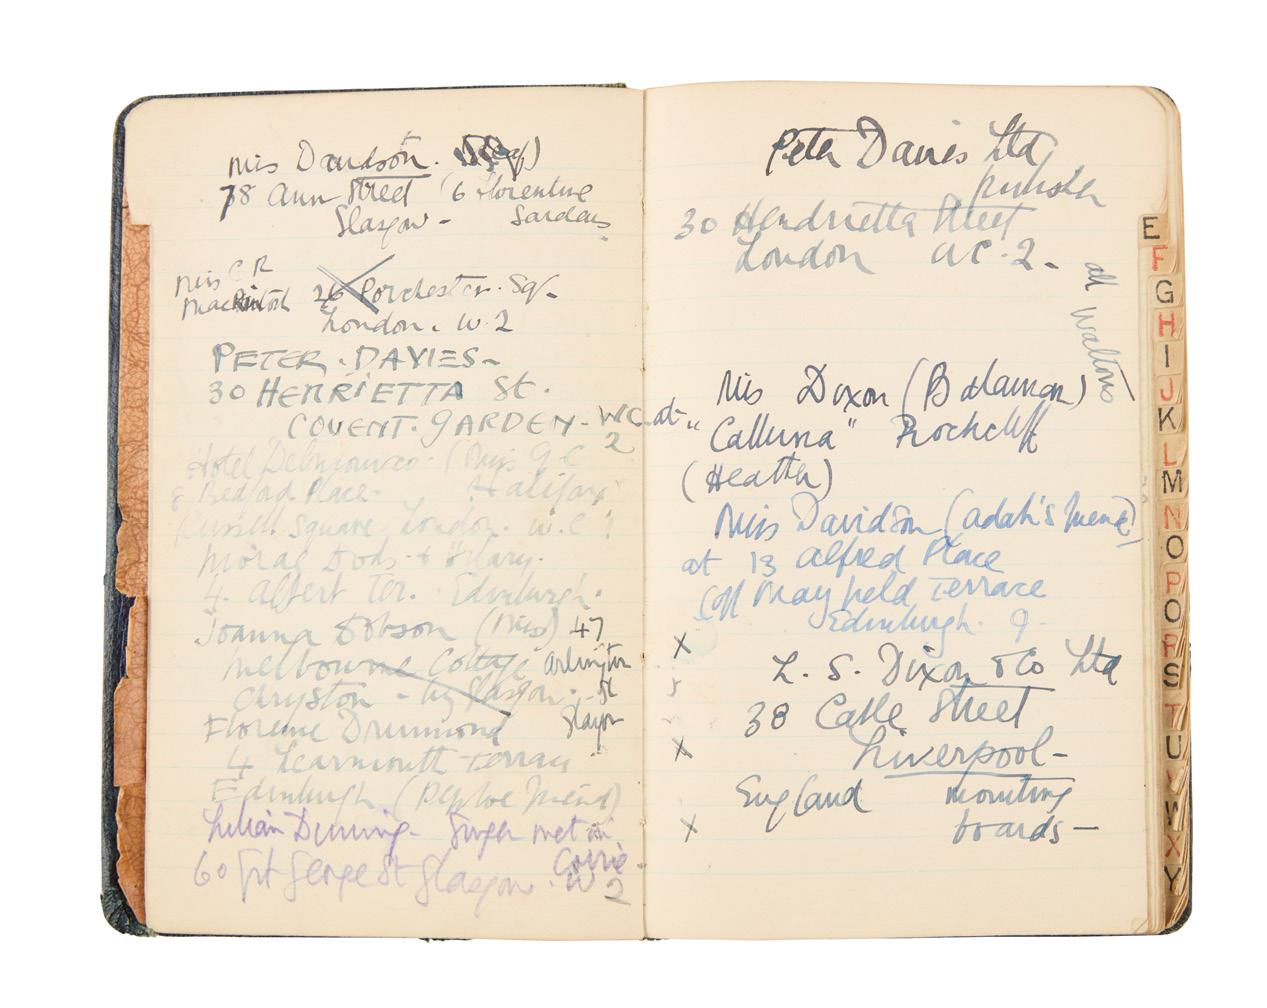 Miss Davidson.
78 Ann Street (6 Florentine
Glasgow - Gardens
Miss C R
Macintosh 26 Porchester. Sq.
London. W.2
PETER. DAVIES-
30 HENRIETTA St.
COVENT. GARDEN - WC
2
Hotel (Miss G C
8 Bedford Place. Halifax
Russell Square London. W.C 1
Morag Dods + Hilary.
4. Albert Ter. Edinburgh.
Joanna Dobson (Miss) 47
Melbourne Cottage Arlington
Chryston - by Glasgow. St
Florence Drummond Glasgow
4 Learmouth Terrace
Edinburgh (Peploe friend)
Lilian Dunning - Singer met in
Corrie -
60 Grt George St Glasgow. W 2
Peter Davies Ltd
30 Henrietta Street
London WC.2-
all Waltons
Miss Dixon (Balaman)
at "Calluna" Rockcliff
(Heather)
Miss Davidson (Adah's friend)
at 13 Alfred Place
off Mayfield Terrace
Edinburgh. 9-
X
L. S. Dixon & Co Ltd
38 Cable Street
X
Liverpool -
England mounting
X
boards -
E
F
G
H
I
J
K
L
M
N
O
P
Q
R
S
T
U
V
W
X
Y